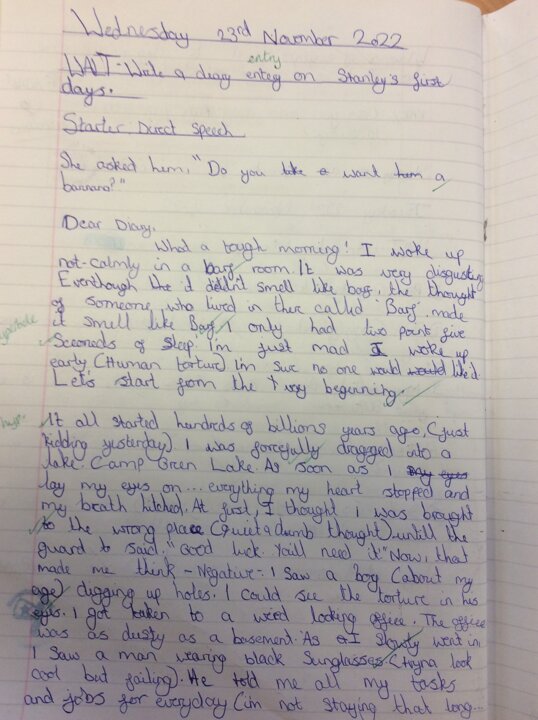 Wednesday 23rd November 2022
entry
WALT:-Write a diary entey on Stanley's first
days.
Starter. Direct Speech
She asked him, "Do you take a want him a
bannana?"
Dear Diary,
What a tough morning! I woke up
not-calmly in a barf room. It was very disgusting
Eventhough the it didn't smell like barf. the thought
of someone, who lived in there called 'Barf'. made
it smell like Barf. I only had two point five
Seconeds of Sleep. I'm just mad I woke up
early (Human torture) I'm sure no one would would like'd
Let's start from the very beginning.
It all started hundreds of billions years ago, (just
kidding yesterday) I was forcefully dragged into a
lake: Camp Green Lake. As soon as I my eyes
lay my eyes on... everything my heart stopped and
my breath hitched. At first, I thought i was brought
to the wrong place (quiet a dumb thought) untill the
guard to said, "Good luck. You'll need it" Now, that
made me think - Negative-. I saw a boy (about my
age) digging up holes. I could see the torture in his
eyes. I got taken to a wierd looking office. The office
was as dusty as a basement. As I slowly went in
I saw a man wearing black Sunglasses (tryna look
cool but failing). He told me all my tasks
and jobs for everyday (im not staying that long...